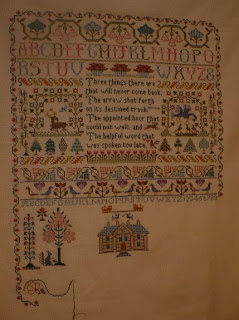 ABCDEFGHIJKLMNOPQ
RSTUV WXYZ&
Three things there are
that will never come back
The arrow shot forth
on its destined track
The appointed hour that
could not wait and
The helpful word that
was spoken too late.
ABCDEFGHIJKLMNOPQRSTUVWXYZ